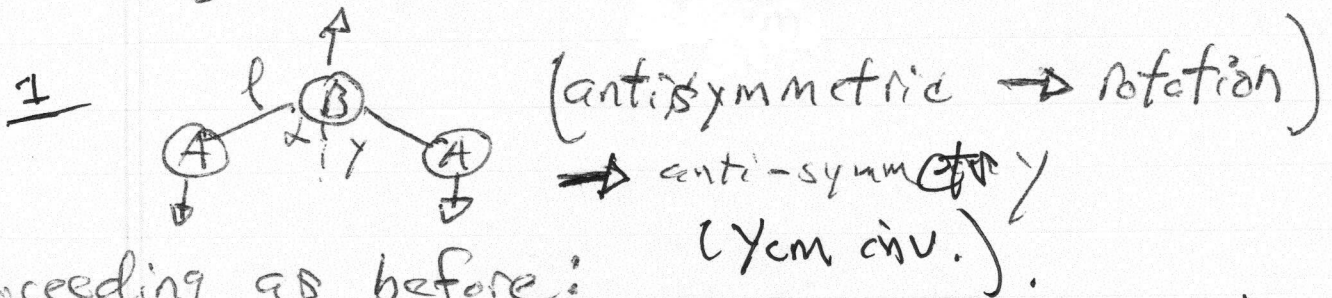 1 l B (antisymmetric → rotation)
A α y A → anti-symmetry
(Ycm inv.).
ceeding as before: